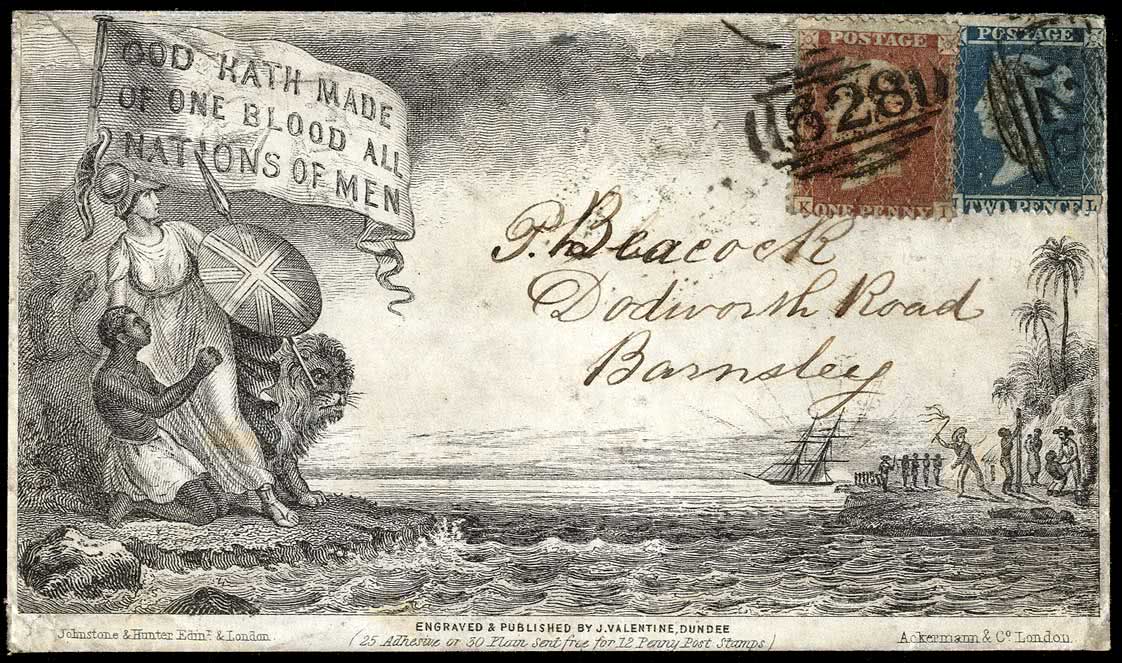 GOD HATH MADE
OF ONE BLOOD ALL
NATIONS OF MEN
POSTAGE
828
K ONE PENNY I
POSTAGE
TWO PENCE L
P. Beacock
Dodworth Road
Barnsley
ENGRAVED & PUBLISHED BY J. VALENTINE, DUNDEE
Johnstone & Hunter Edinr. & London.
(25 Adhesive or 30 Plain sent free for 12 Penny Post Stamps)
Ackermann & Co. London.